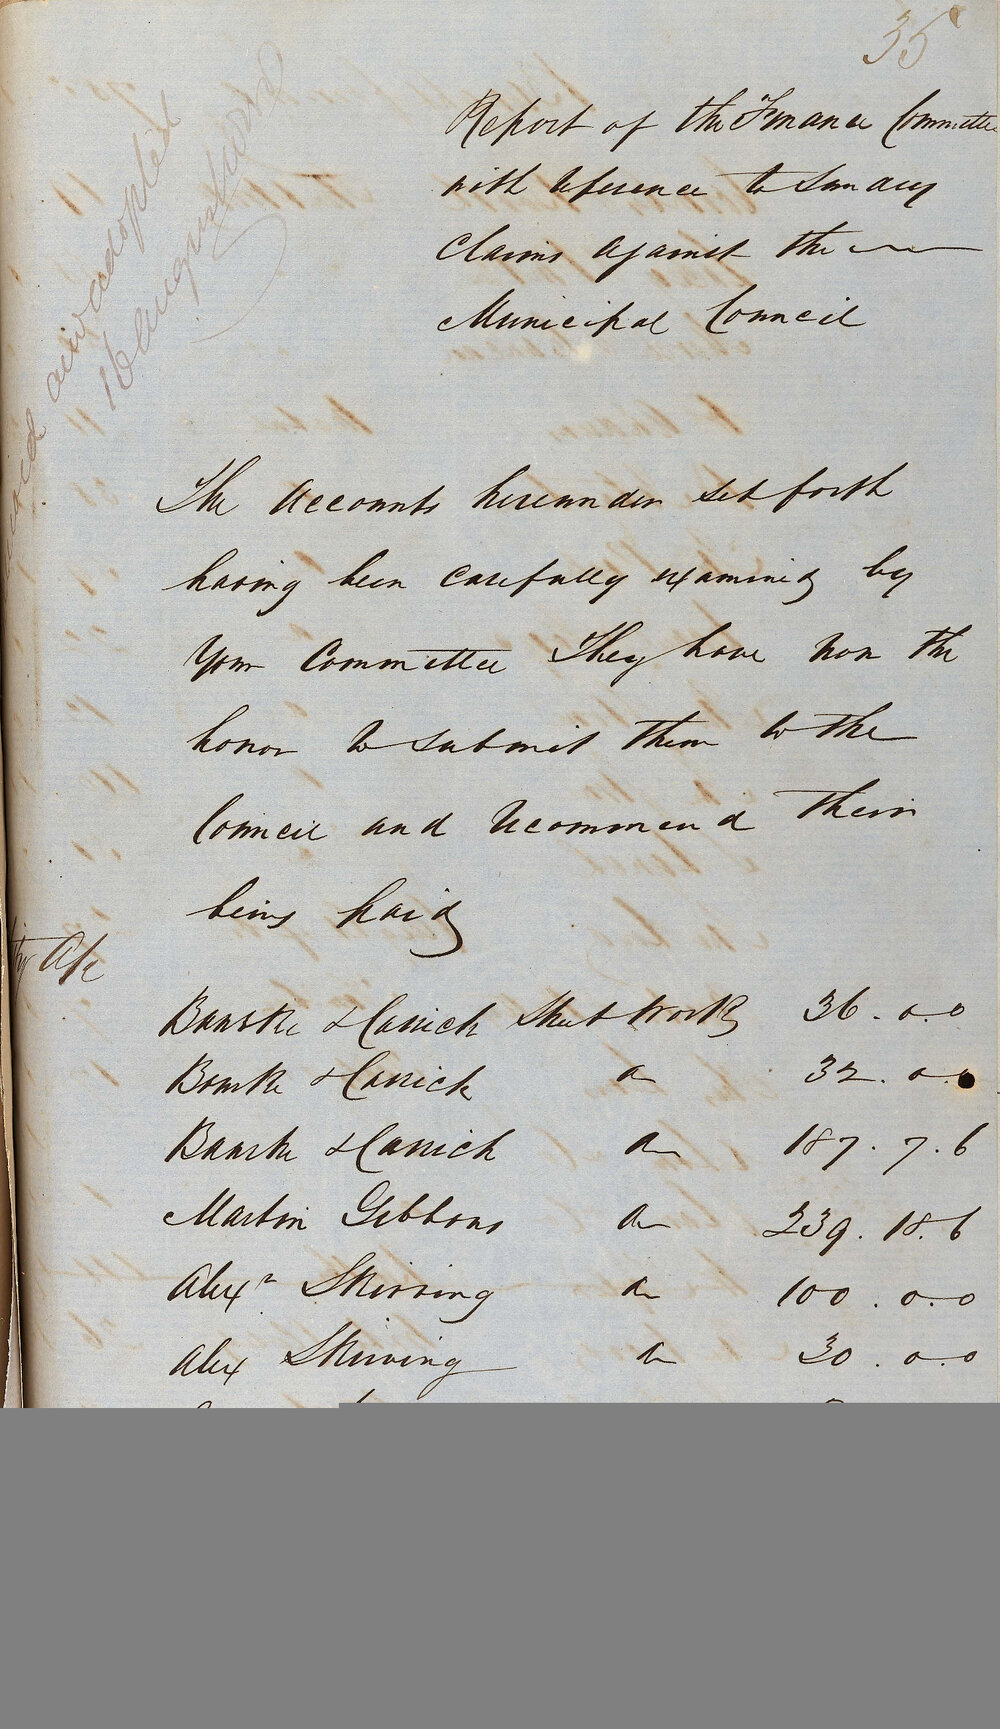 35
Report of the Finance Committee
with reference to Sundry
Claims against the
Municipal Council
The Accounts hereunder set forth
having been carefully examined by
Your Committee They have now the
honor to submit them to the
Council and recommend their
being paid
City A/c
Bourke & Carrick Street Work 36.0.0
Bourke & Carrick Do 32.0.0
Bourke & Carrick Do 187.7.6
Martin Gibbons Do 239.18.6
Alexr Skirving Do 100.0.0
Alex Skirving Do 30.0.0